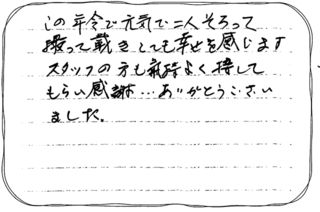 この年令で元気で二人そろって
撮って戴きとても幸せを感じます
スタッフの方も気持よく接して
もらい感謝…ありがとうござい
ました。